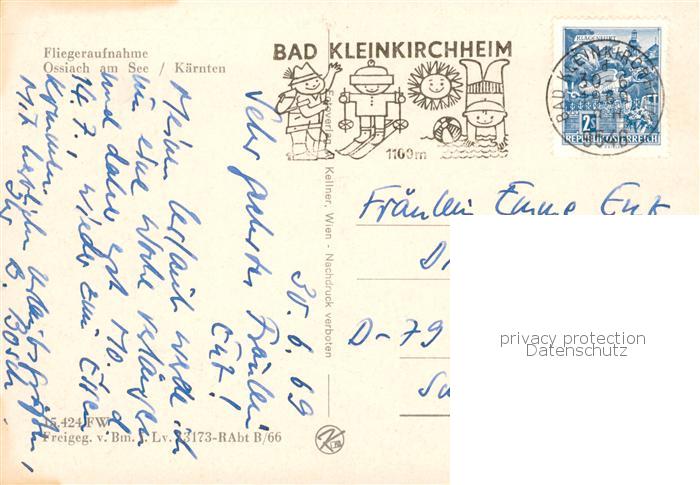 Fliegeraufnahme
Ossiach am See / Kärnten
BAD KLEINKIRCHHEIM
1100m
KLAGENFURT
REPUBLIK ÖSTERREICH
BAD KLEINKIRCHHEIM
Kellner, Wien - Nachdruck verboten
30. 6. 69
Sehr geehrtes Fräulein
Enk!
Meinen Urlaub werde ich
um eine Woche verlängern
und daher erst Mo. d.
14.7. wieder zum Essen
kommen.
Mit herzlichen Urlaubsgrüßen,
Ihr B.
Fräulein Emme Enk
D-79
15.424 FW
Freigeg. v. Bm. f. Lv. 13173-RAbt B/66
privacy protection
Datenschutz